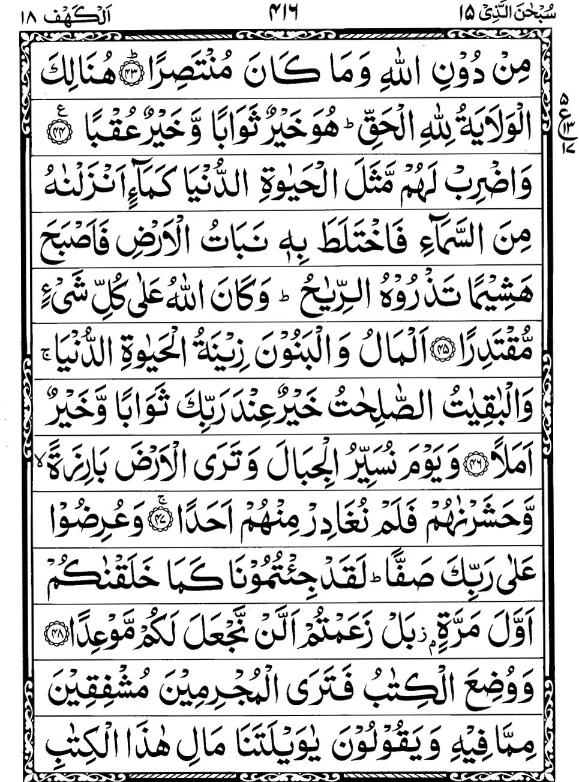 سُبْحٰنَ الَّذِيْٓ ۱۵
۴۱۶
اَلْكَهْف ۱۸
مِنْ دُوْنِ اللّٰهِ وَمَا كَانَ مُنْتَصِرًا ؕ﴿۴۳﴾ هُنَالِكَ
الْوَلَايَةُ لِلّٰهِ الْحَقِّ ؕ هُوَ خَيْرٌ ثَوَابًا وَّخَيْرٌ عُقْبًا ﴿۴۴﴾ ع
۵
ع ۱۳
۱۷
وَاضْرِبْ لَهُمْ مَّثَلَ الْحَيٰوةِ الدُّنْيَا كَمَآءٍ اَنْزَلْنٰهُ
مِنَ السَّمَآءِ فَاخْتَلَطَ بِهٖ نَبَاتُ الْاَرْضِ فَاَصْبَحَ
هَشِيْمًا تَذْرُوْهُ الرِّيٰحُ ؕ وَكَانَ اللّٰهُ عَلٰى كُلِّ شَيْءٍ
مُّقْتَدِرًا ﴿۴۵﴾ اَلْمَالُ وَالْبَنُوْنَ زِيْنَةُ الْحَيٰوةِ الدُّنْيَا ۚ
وَالْبٰقِيٰتُ الصّٰلِحٰتُ خَيْرٌ عِنْدَ رَبِّكَ ثَوَابًا وَّخَيْرٌ
اَمَلًا ﴿۴۶﴾ وَيَوْمَ نُسَيِّرُ الْجِبَالَ وَتَرَى الْاَرْضَ بَارِزَةً ۙ
وَّحَشَرْنٰهُمْ فَلَمْ نُغَادِرْ مِنْهُمْ اَحَدًا ۚ﴿۴۷﴾ وَعُرِضُوْا
عَلٰى رَبِّكَ صَفًّا ؕ لَقَدْ جِئْتُمُوْنَا كَمَا خَلَقْنٰكُمْ
اَوَّلَ مَرَّةٍۭ ؗ بَلْ زَعَمْتُمْ اَلَّنْ نَّجْعَلَ لَكُمْ مَّوْعِدًا ﴿۴۸﴾
وَوُضِعَ الْكِتٰبُ فَتَرَى الْمُجْرِمِيْنَ مُشْفِقِيْنَ
مِمَّا فِيْهِ وَيَقُوْلُوْنَ يٰوَيْلَتَنَا مَالِ هٰذَا الْكِتٰبِ